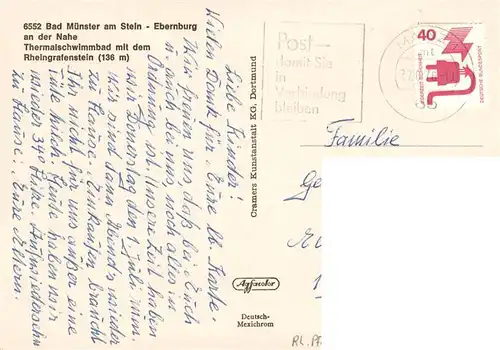 6552 Bad Münster am Stein - Ebernburg
an der Nahe
Thermalschwimmbad mit dem
Rheingrafenstein (136 m)
Liebe Kinder!
Vielen Dank für Eure lb. Karte.
Wir freuen uns, daß bei Euch
u. auch bei uns, noch alles in
Ordnung ist. Unsere Zeit haben
wir Donnerstag den 1. Juli um.
Wir sind dann Abends wieder
zu Hause. Einkaufen braucht
Ihr nicht für uns außer eine
Tüte Milch. Heute haben wir
wieder 34° Hitze. Aufwiedersehn
zu Hause! Eure Eltern.
Cramers Kunstanstalt KG, Dortmund
Agfacolor
Deutsch-
Mexichrom
Post –
damit Sie
in
Verbindung
bleiben
40
DEUTSCHE BUNDESPOST
Familie